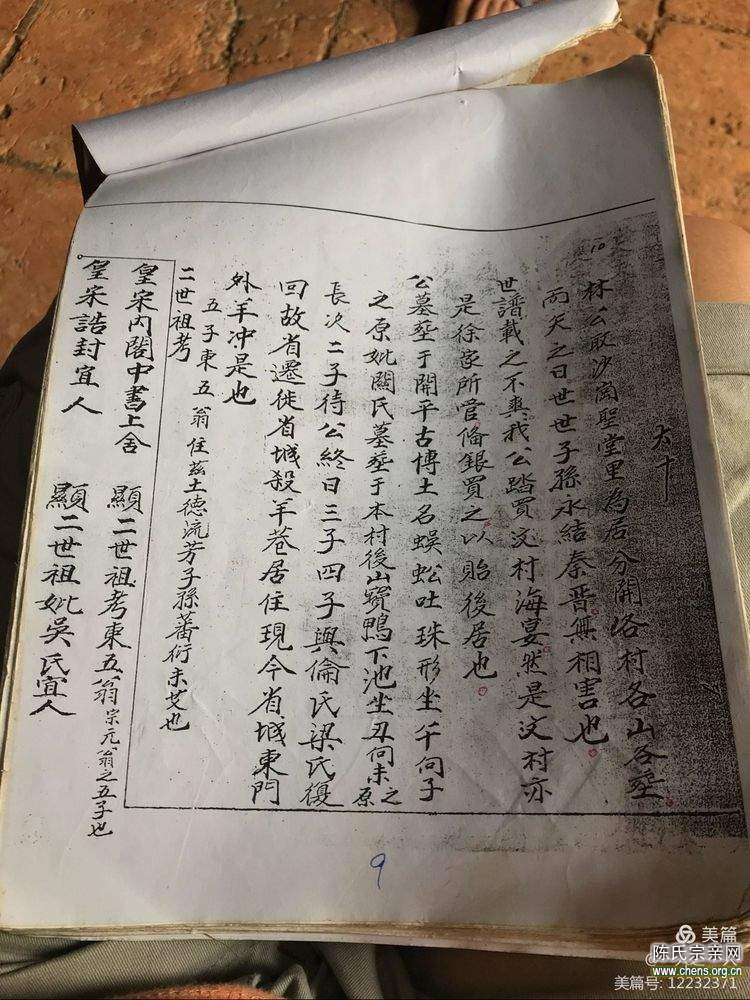 10
六十
林公取沙崗聖堂里為居分開各村各山各墾
而矢之曰世世子孫永結秦晋無相害也
世譜載之不爽我公踏買汶村海宴然是汶村亦
是徐家所管俻銀買之以貽後居也
公墓塟于開平古博土名蜈蚣吐珠形坐午向子
之原妣關氏墓塟于本村後山寶鴨下池坐丑向未之原
長次二子待公終日三子四子與倫氏梁氏復
回故省遷徙省城殺羊巷居住現今省城東門
外羊冲是也
五子東五翁住兹土德流芳子孫蕃衍未艾也
二世祖考
皇宋内閣中書上舍 顯二世祖考東五翁宗元翁之五子也
皇宋誥封宜人 顯二世祖妣吳氏宜人
9
美篇
陈氏宗亲网
www.chens.org.cn
美篇号: 12232371